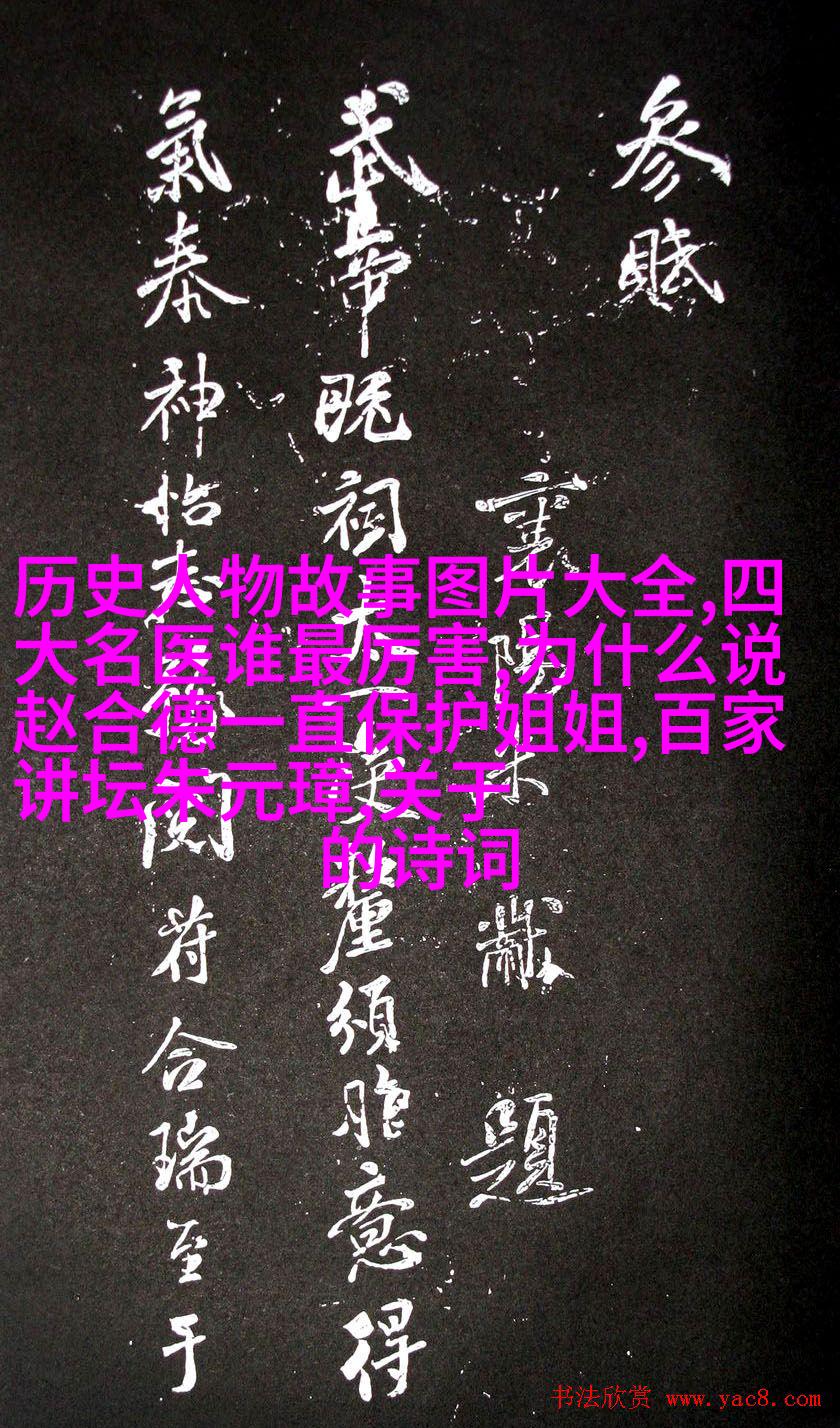 參賦
襄陽米黻題
武帝既祠太一受釐頒胙意得
氣泰神怡志閱苻合瑞至于
历史人物故事图片大全,四
大名医谁最厉害,为什么说
赵合德一直保护姐姐,百家
讲坛朱元璋,关于
的诗词
书法欣赏 www.yac8.com